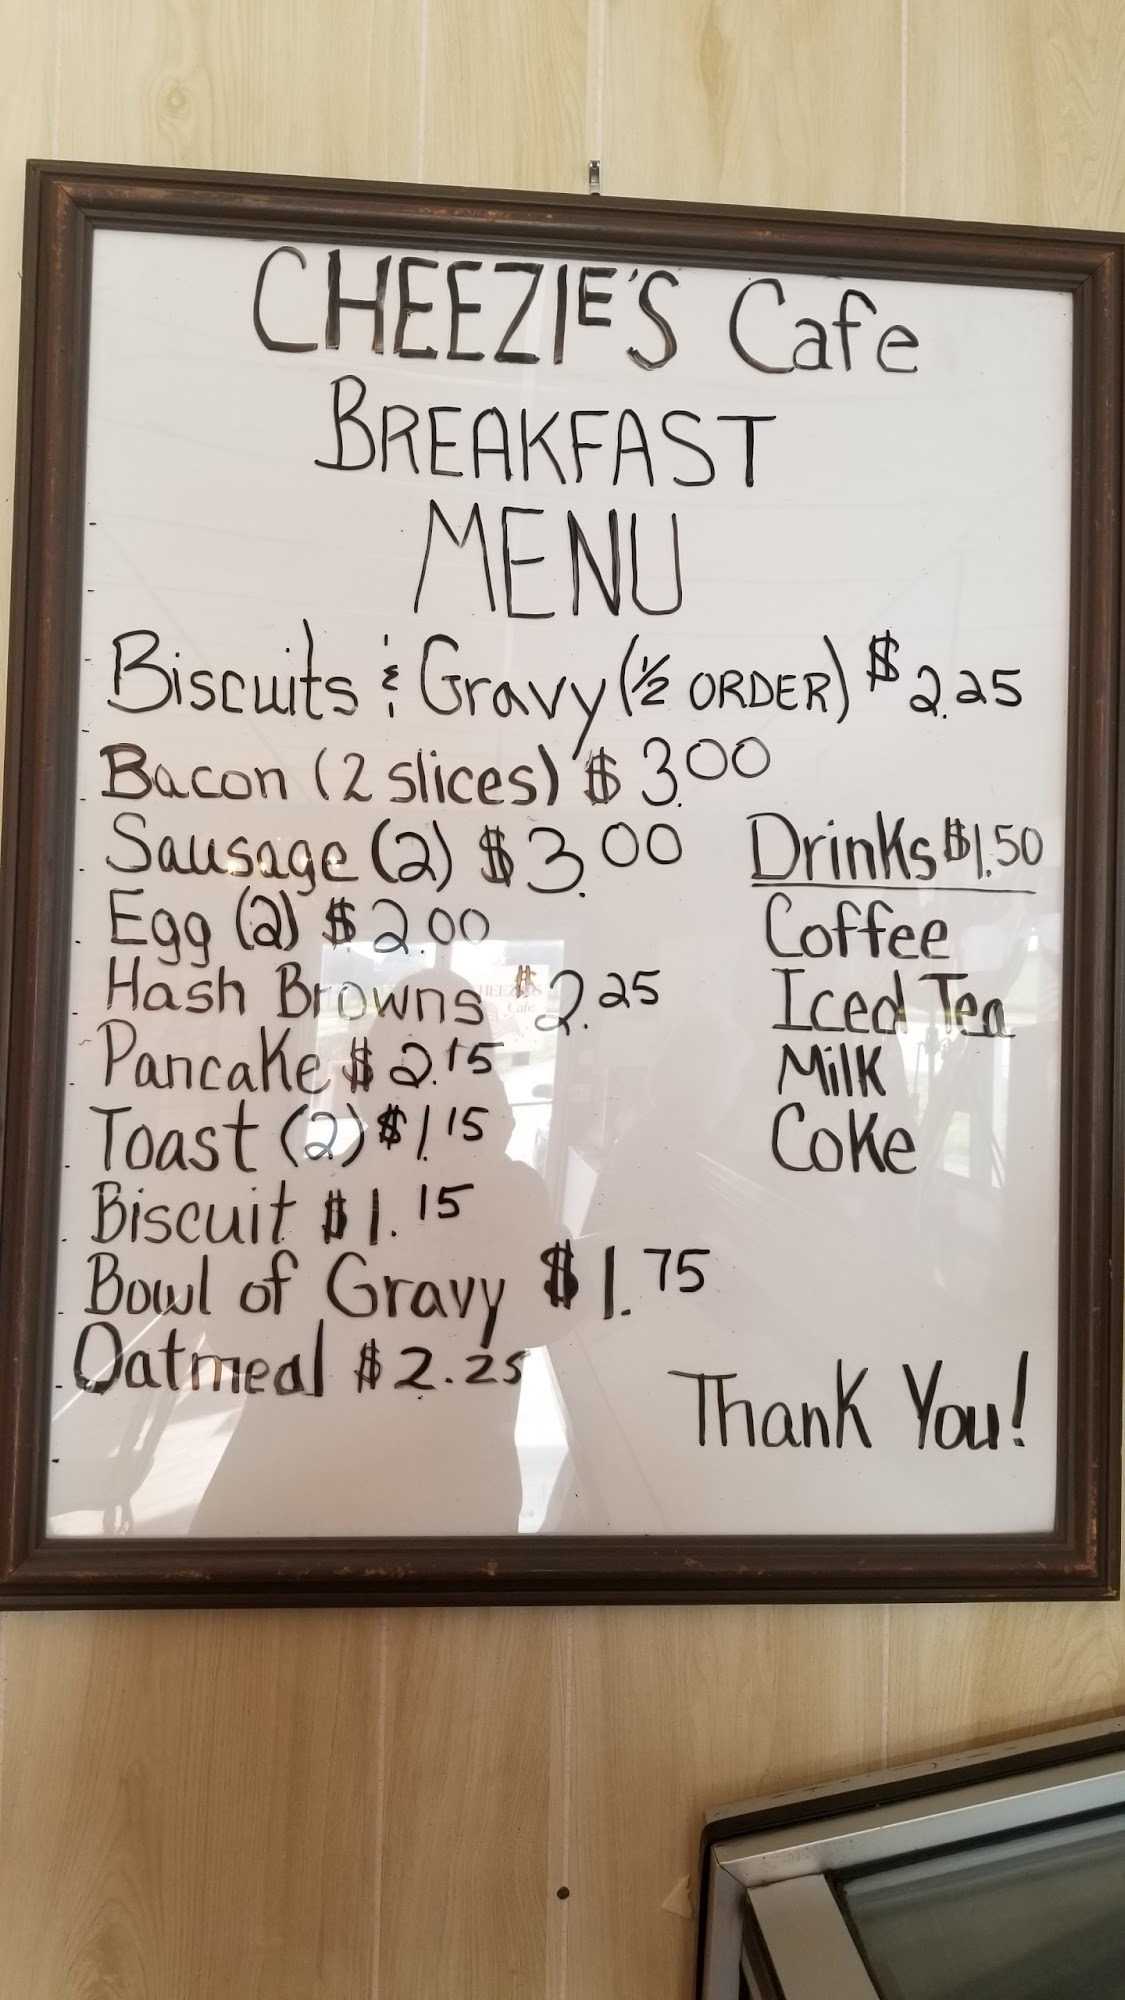 CHEEZIE'S Cafe
BREAKFAST
MENU
Biscuits & Gravy (1/2 ORDER) $2.25
Bacon (2 slices) $3.00
Sausage (2) $3.00
Egg (2) $2.00
Hash Browns $2.25
Pancake $2.15
Toast (2) $1.15
Biscuit $1.15
Bowl of Gravy $1.75
Oatmeal $2.25
Drinks $1.50
Coffee
Iced Tea
Milk
Coke
Thank You!